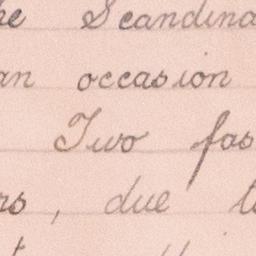 he Scandina
an occasion
Two fas
rs, due t